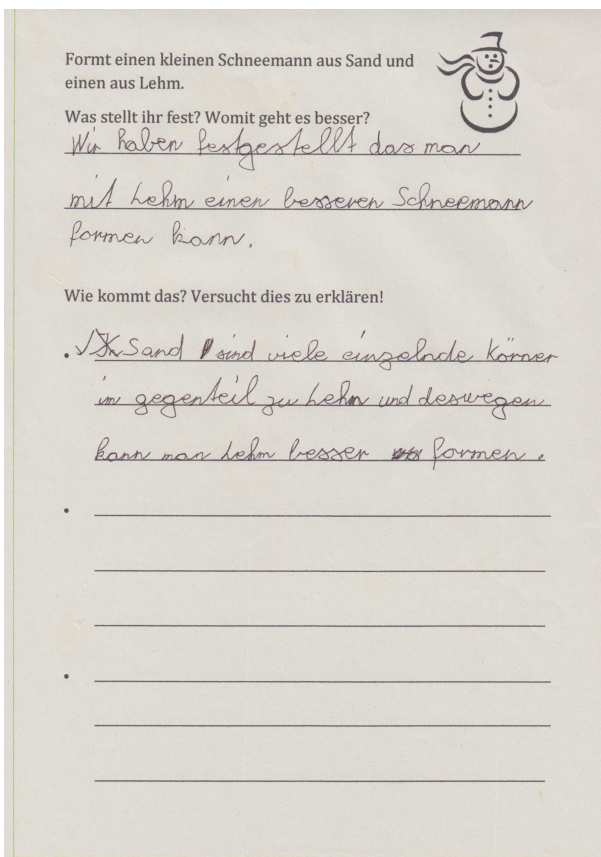 Formt einen kleinen Schneemann aus Sand und
einen aus Lehm.
Was stellt ihr fest? Womit geht es besser?
Wir haben festgestellt das man
mit Lehm einen besseren Schneemann
formen kann.
Wie kommt das? Versucht dies zu erklären!
• In Sand sind viele einzelnde Körner
im gegenteil zu Lehm und deswegen
kann man Lehm besser formen.
•
•